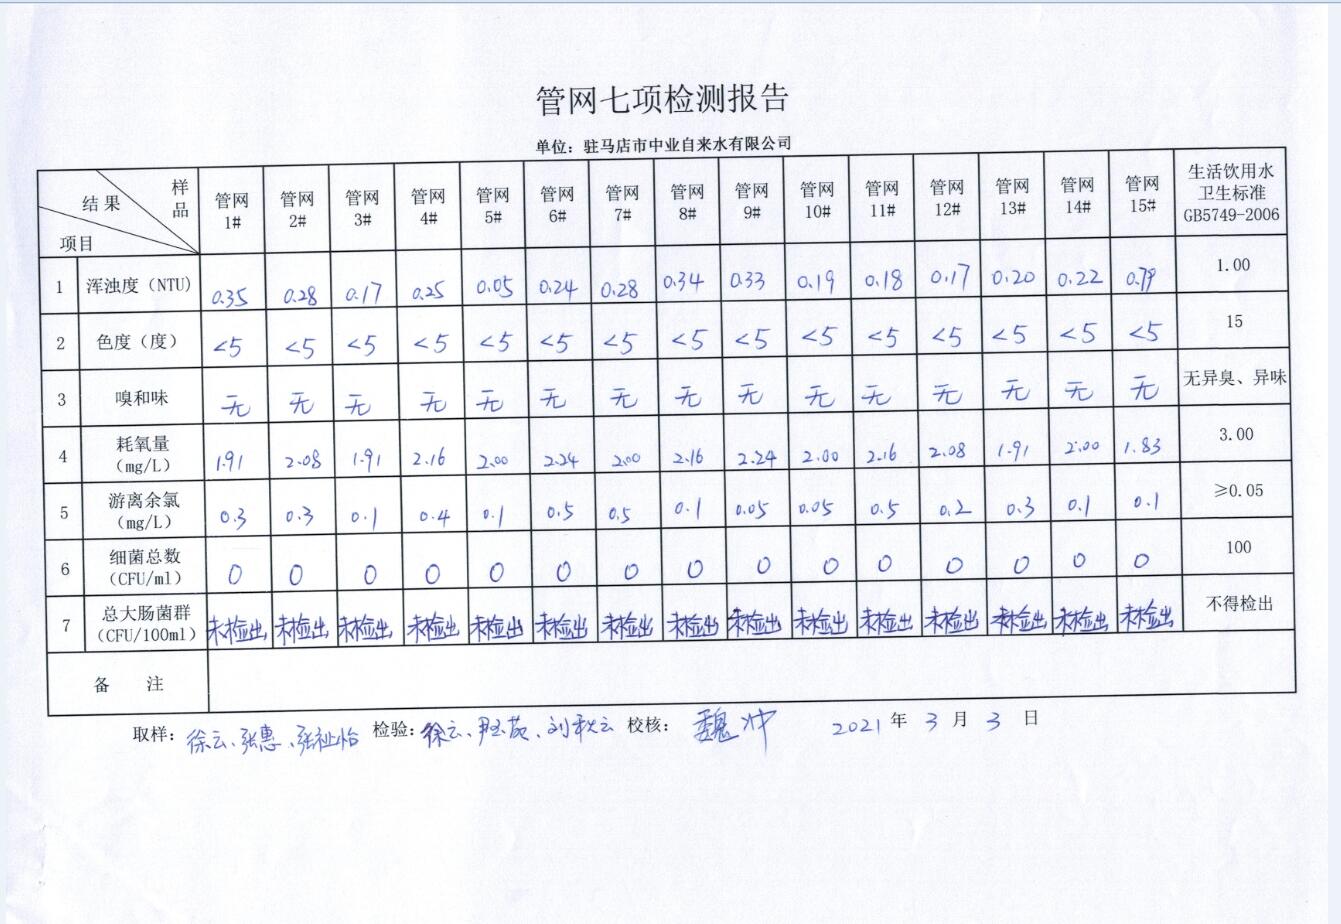 管网七项检测报告
单位：驻马店市中业自来水有限公司
样品 结果 项目 管网1# 管网2# 管网3# 管网4# 管网5# 管网6# 管网7# 管网8# 管网9# 管网10# 管网11# 管网12# 管网13# 管网14# 管网15# 生活饮用水卫生标准GB5749-2006
1 浑浊度（NTU） 0.35 0.28 0.17 0.25 0.05 0.24 0.28 0.34 0.33 0.19 0.18 0.17 0.20 0.22 0.79 1.00
2 色度（度） <5 <5 <5 <5 <5 <5 <5 <5 <5 <5 <5 <5 <5 <5 <5 15
3 嗅和味 无 无 无 无 无 无 无 无 无 无 无 无 无 无 无 无异臭、异味
4 耗氧量（mg/L） 1.91 2.08 1.91 2.16 2.00 2.24 2.00 2.16 2.24 2.00 2.16 2.08 1.91 2.00 1.83 3.00
5 游离余氯（mg/L） 0.3 0.3 0.1 0.4 0.1 0.5 0.5 0.1 0.05 0.05 0.5 0.2 0.3 0.1 0.1 ≥0.05
6 细菌总数（CFU/ml） 0 0 0 0 0 0 0 0 0 0 0 0 0 0 0 100
7 总大肠菌群（CFU/100ml） 未检出 未检出 未检出 未检出 未检出 未检出 未检出 未检出 未检出 未检出 未检出 未检出 未检出 未检出 未检出 不得检出
备 注
取样：徐云、张惠、张祉怡 检验：徐云、、刘秋云 校核：魏冲 2021年3月3日